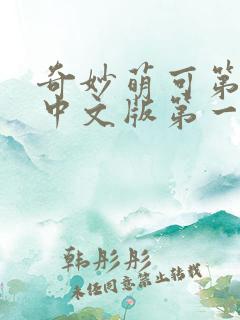 奇妙萌可第
中文版第一
韩彤彤
未经同意禁止转载